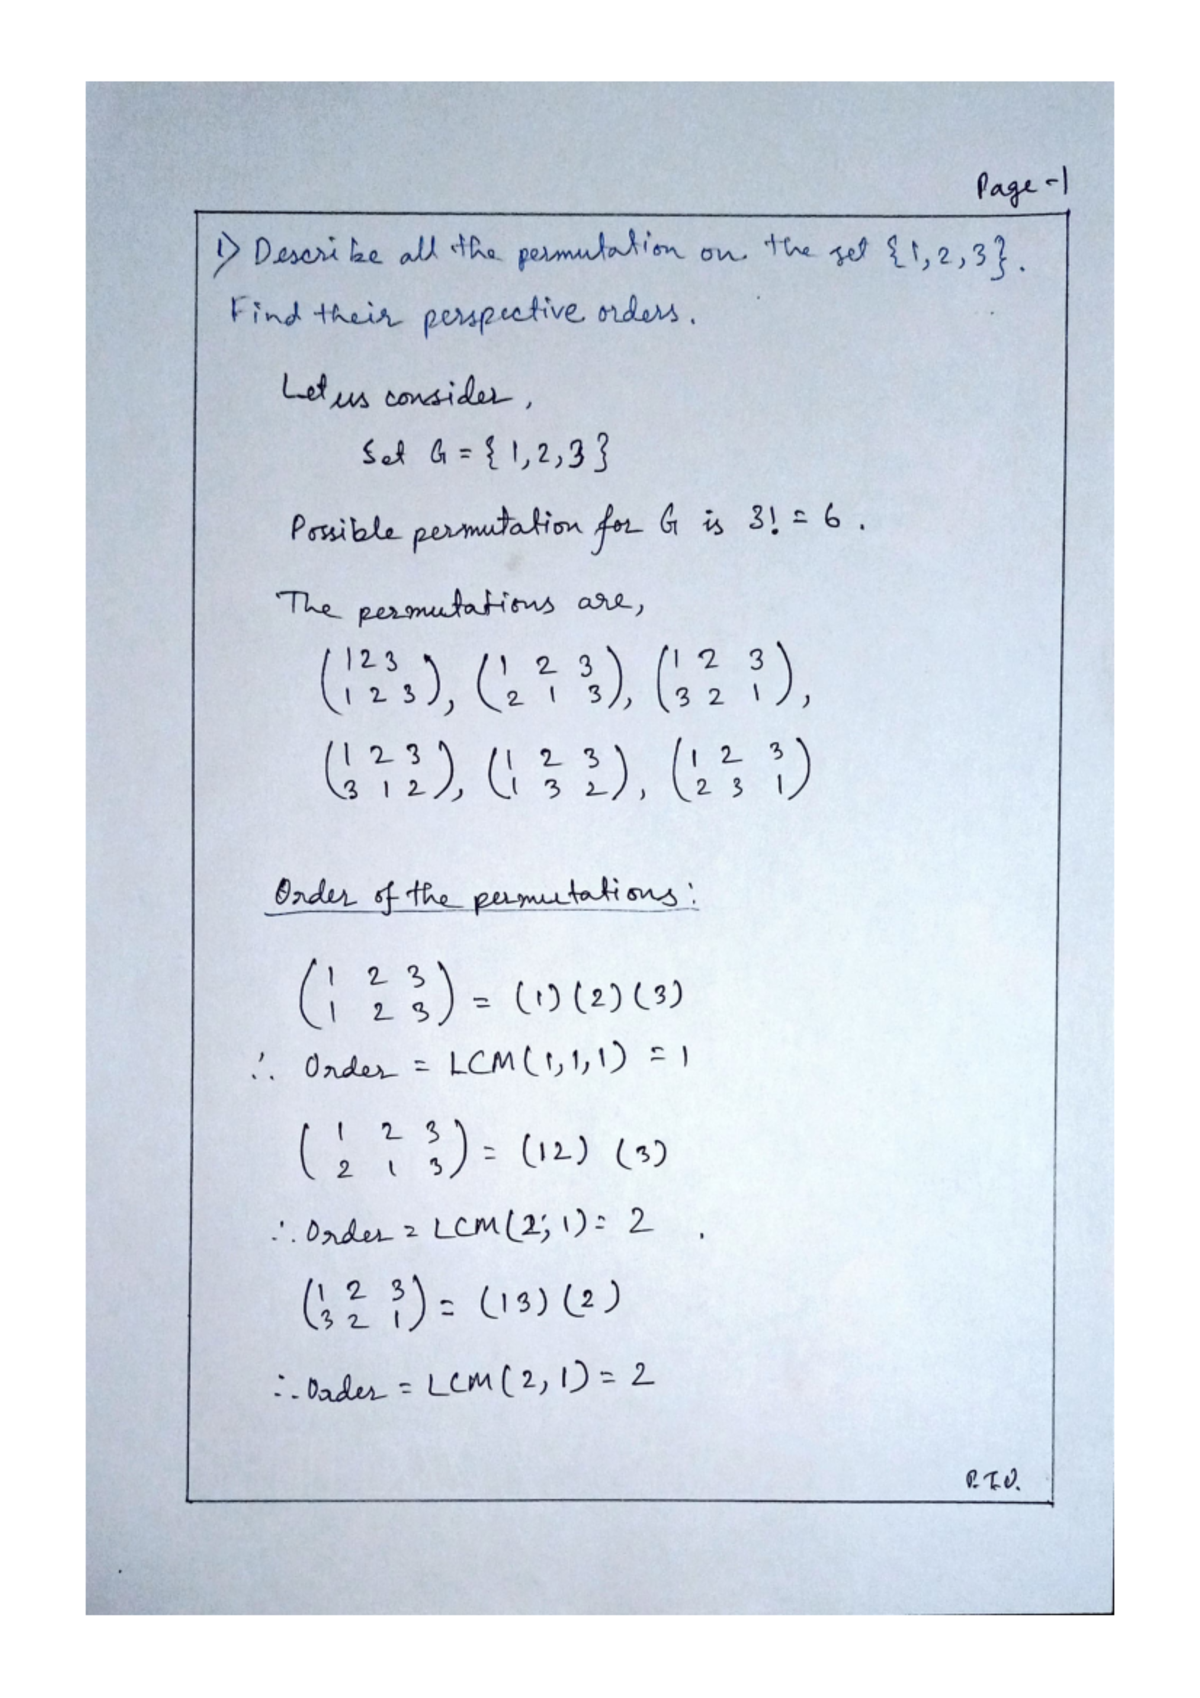 Page-1
1) Describe all the permutation on the set {1,2,3}.
Find their perspective orders.
Let us consider,
Set G = {1,2,3}
Possible permutation for G is 3! = 6.
The permutations are,
(1 2 3 / 1 2 3), (1 2 3 / 2 1 3), (1 2 3 / 3 2 1),
(1 2 3 / 3 1 2), (1 2 3 / 1 3 2), (1 2 3 / 2 3 1)
Order of the permutations:
(1 2 3 / 1 2 3) = (1)(2)(3)
∴ Order = LCM(1,1,1) = 1
(1 2 3 / 2 1 3) = (12) (3)
∴ Order = LCM(2,1) = 2
(1 2 3 / 3 2 1) = (13)(2)
∴ Order = LCM(2,1) = 2
P.T.O.